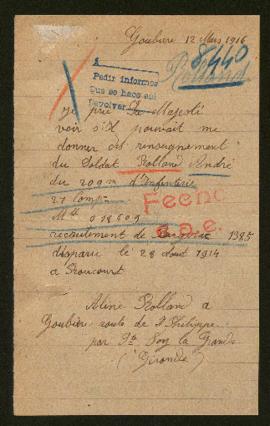 Goubière 12 Mars 1916
8/440
Rolland
Pedir informes
Que se hace aqui
Devolver
je prie La Majesté
voir s'il pourrait me
donner des renseignement
du Soldat Rolland André
du 209m d'Infanterie
21 comp
Mle 01860
recrutement de 1385
disparu le 28 Aout 1914
a Raucourt
Aline Rolland a
Goubière route de St Philippe
par Ste Foy la Grande
(Gironde)